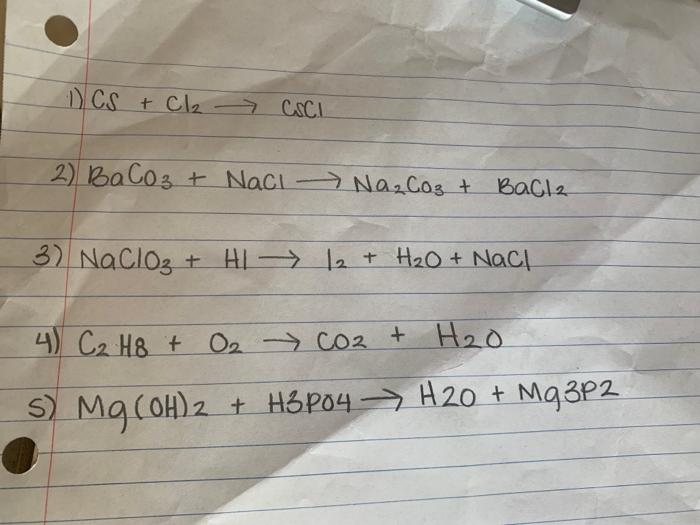 1) Cs + Cl2 → CsCl
2) BaCO3 + NaCl → Na2CO3 + BaCl2
3) NaClO3 + HI → I2 + H2O + NaCl
4) C2H8 + O2 → CO2 + H2O
5) Mg(OH)2 + H3PO4 → H2O + Mg3P2